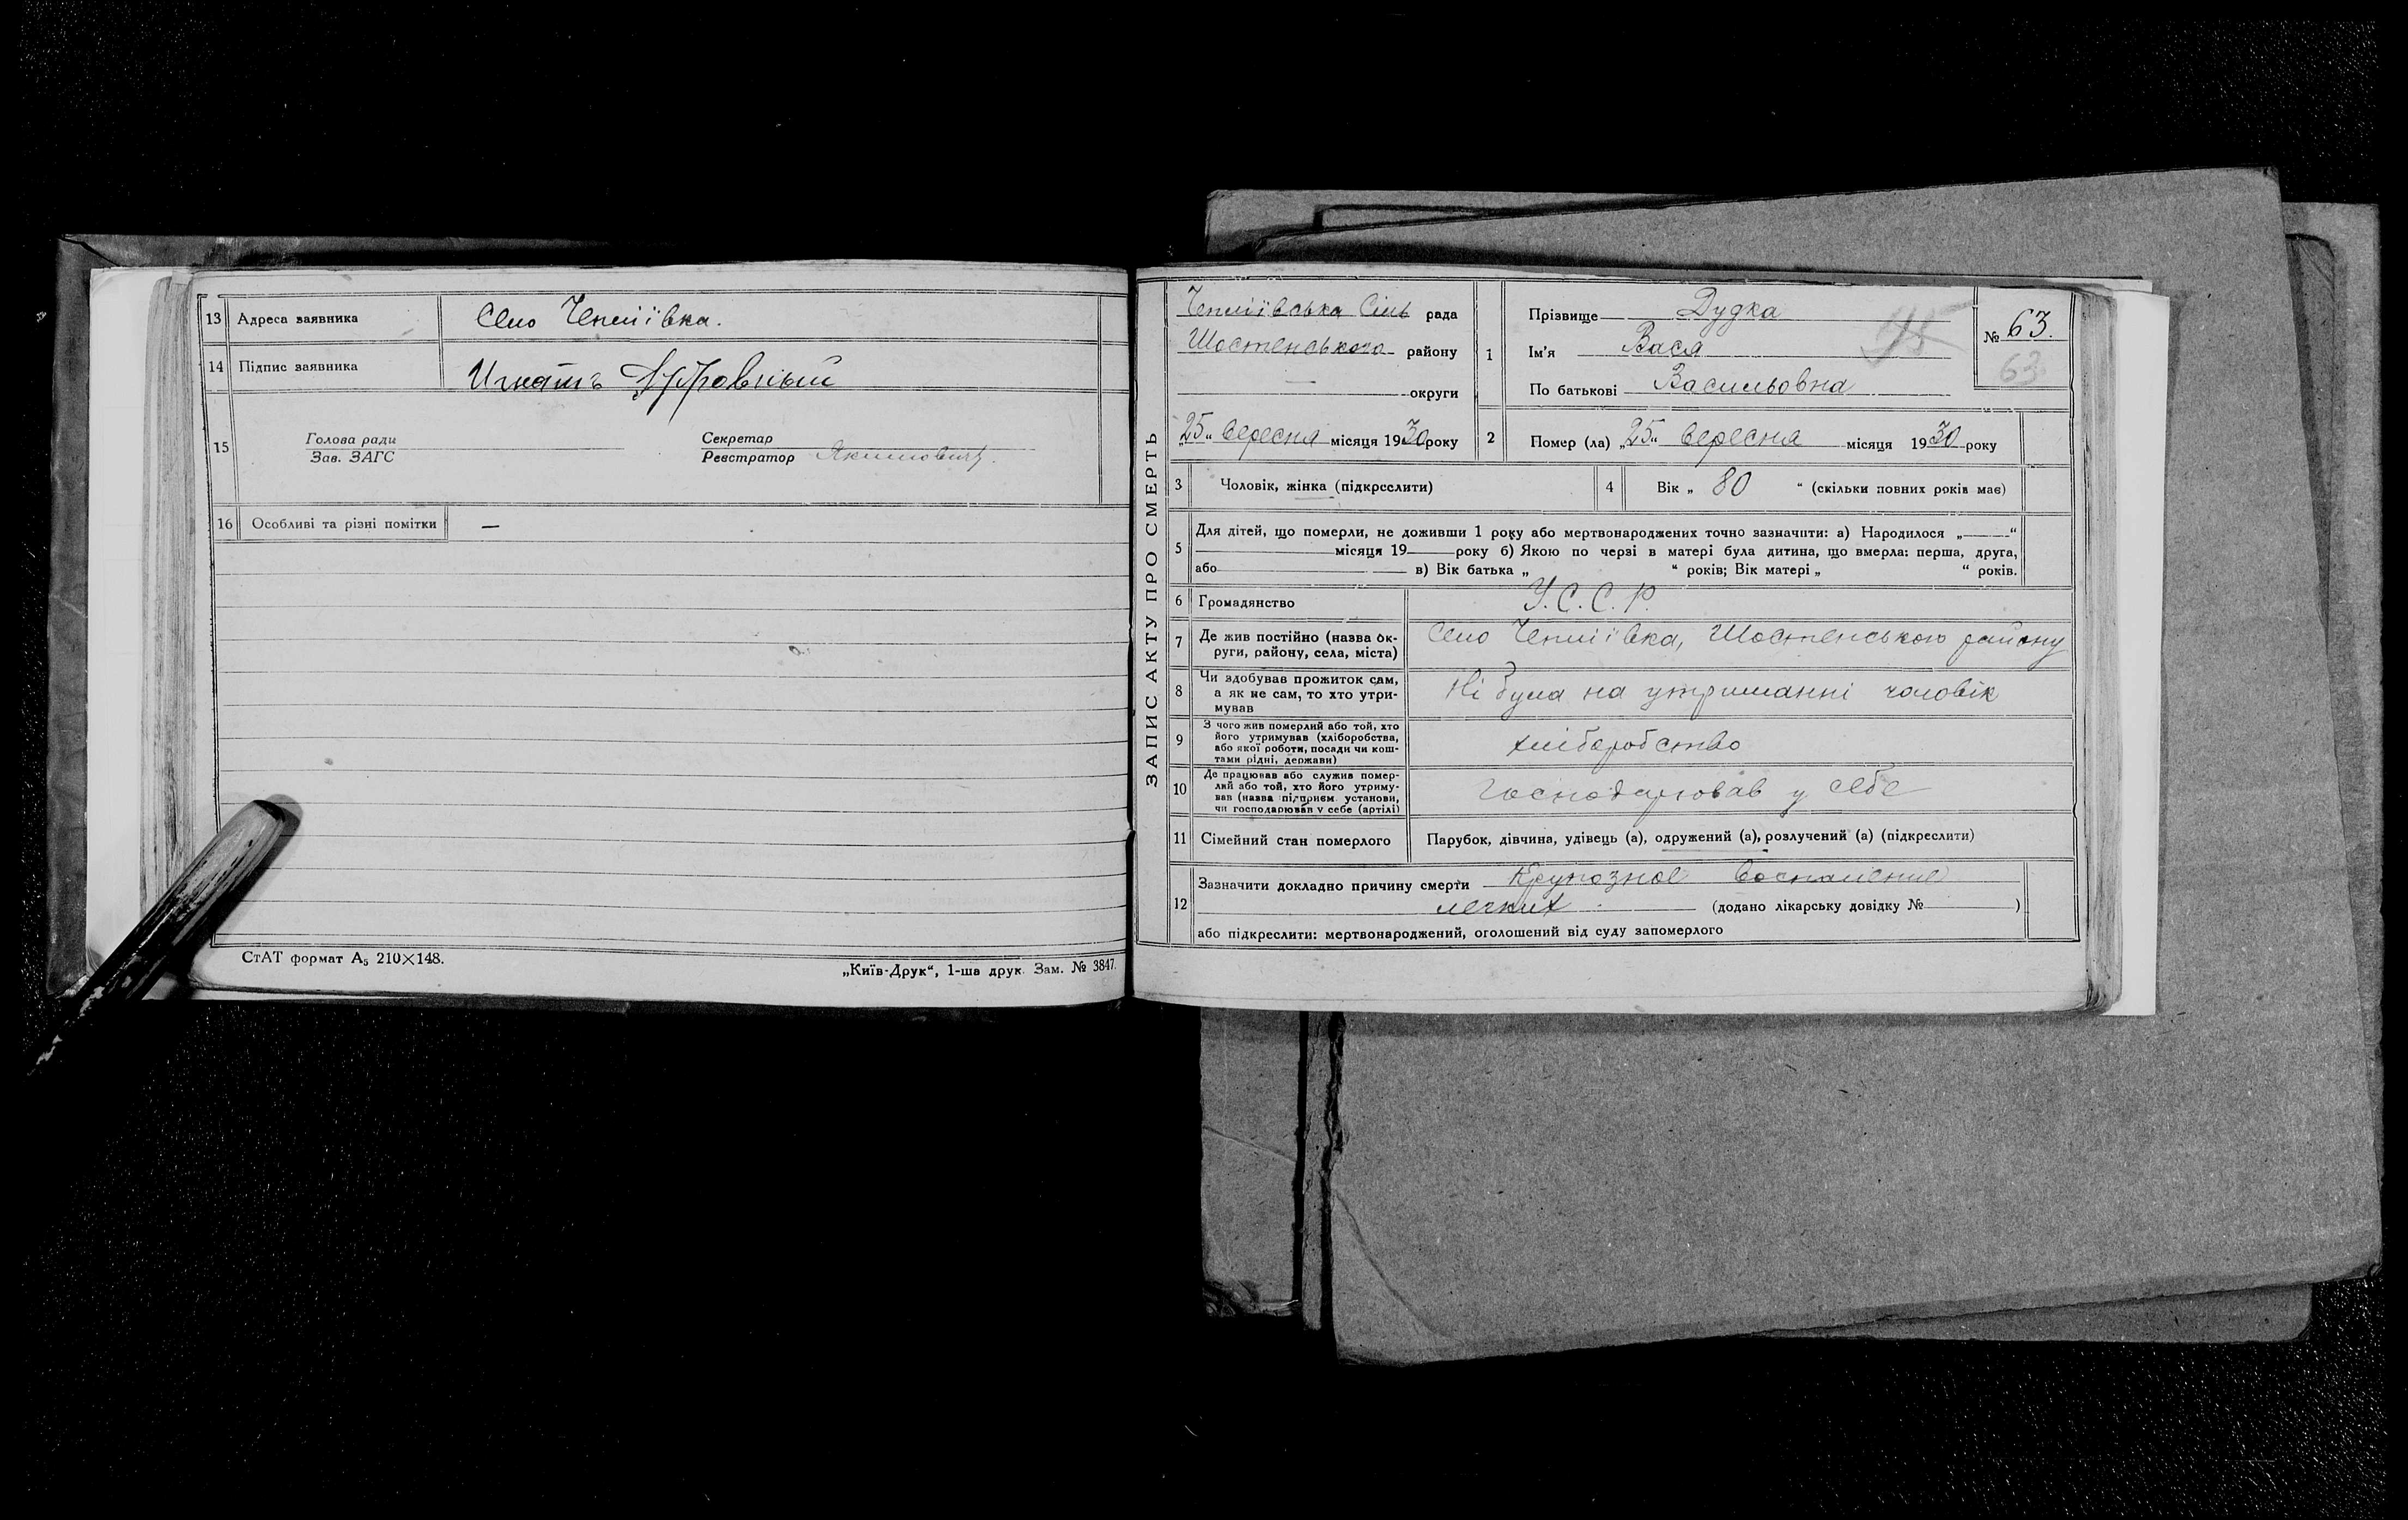 13 Адреса заявника Село Чепліївка.
14 Підпис заявника Игнатъ
15 Голова ради
Зав. ЗАГС
Секретар
Реєстратор Якимович
16 Особливі та різні помітки —
СтАТ формат А₅ 210×148.
„Київ-Друк“, 1-ша друк. Зам. № 3847.
ЗАПИС АКТУ ПРО СМЕРТЬ
Чепліївська Сіль рада
Шостенського району
— округи
„25“ вересня місяця 1930 року
1 Прізвище Дудка
Ім'я Вася
По батькові Васильовна
№ 63.
63
2 Помер (ла) „25“ вересня місяця 1930 року
3 Чоловік, жінка (підкреслити)
4 Вік „ 80 “ (скільки повних років має)
5 Для дітей, що померли, не доживши 1 року або мертвонароджених точно зазначити: а) Народилося „——“
місяця 19 року б) Якою по черзі в матері була дитина, що вмерла: перша, друга,
або в) Вік батька „ “ років; Вік матері „ “ років.
6 Громадянство У.С.С.Р.
7 Де жив постійно (назва ок-
руги, району, села, міста) Село Чепліївка, Шостенського району
8 Чи здобував прожиток сам,
а як не сам, то хто утри-
мував Ні була на утриманні чоловік
9 З чого жив померлий або той, хто
його утримував (хліборобства,
або якої роботи, посади чи кош-
тами рідні, держави) хліборобство
10 Де працював або служив помер-
лий або той, хто його утриму-
вав (назва підприєм. установи,
чи господарював у себе (артілі) Господарював у себе
11 Сімейний стан померлого Парубок, дівчина, удівець (а), одружений (а), розлучений (а) (підкреслити)
12 Зазначити докладно причину смерти Крупозное воспаление
легких. (додано лікарську довідку № )
або підкреслити: мертвонароджений, оголошений від суду запомерлого